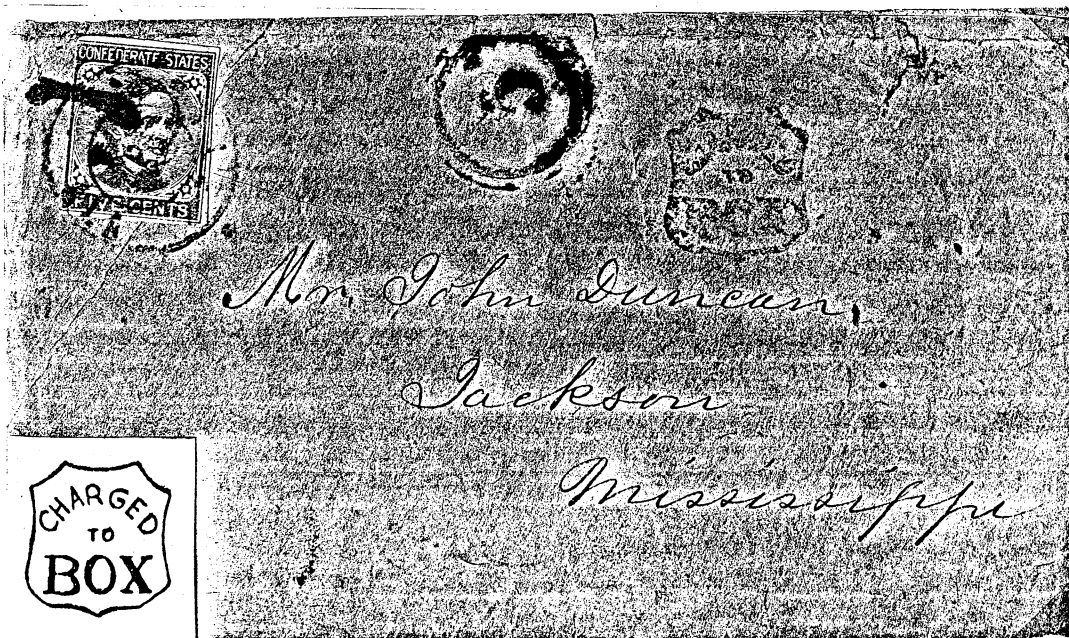 CONFEDERATE STATES
FIVE CENTS
Mr. John Duncan,
Jackson
Mississippi
CHARGED
TO
BOX